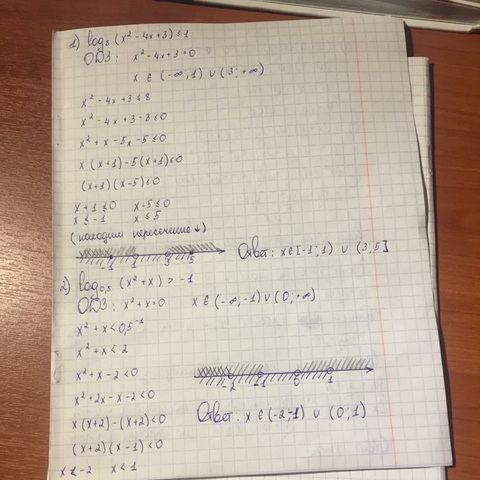 1) log₈ (x² - 4x + 3) ≤ 1
ОДЗ: x² - 4x + 3 > 0
x ∈ (-∞; 1) ∪ (3; +∞)
x² - 4x + 3 ≤ 8
x² - 4x + 3 - 8 ≤ 0
x² + x - 5x - 5 ≤ 0
x (x+1) - 5(x+1) ≤ 0
(x+1)(x-5) ≤ 0
x + 1 ≤ 0 x - 5 ≤ 0
x ≤ -1 x ≤ 5
(находим пересечение ↓)
-1 1 3 5
Ответ: x ∈ [-1; 1) ∪ (3; 5]
2) log₀,₅ (x² + x) > -1
ОДЗ: x² + x > 0 x ∈ (-∞; -1) ∪ (0; +∞)
x² + x < 0,5⁻¹
x² + x < 2
x² + x - 2 < 0
-2 -1 0 1
x² + 2x - x - 2 < 0
x (x+2) - (x+2) < 0
Ответ: x ∈ (-2; -1) ∪ (0; 1)
(x+2)(x-1) < 0
x < -2 x < 1